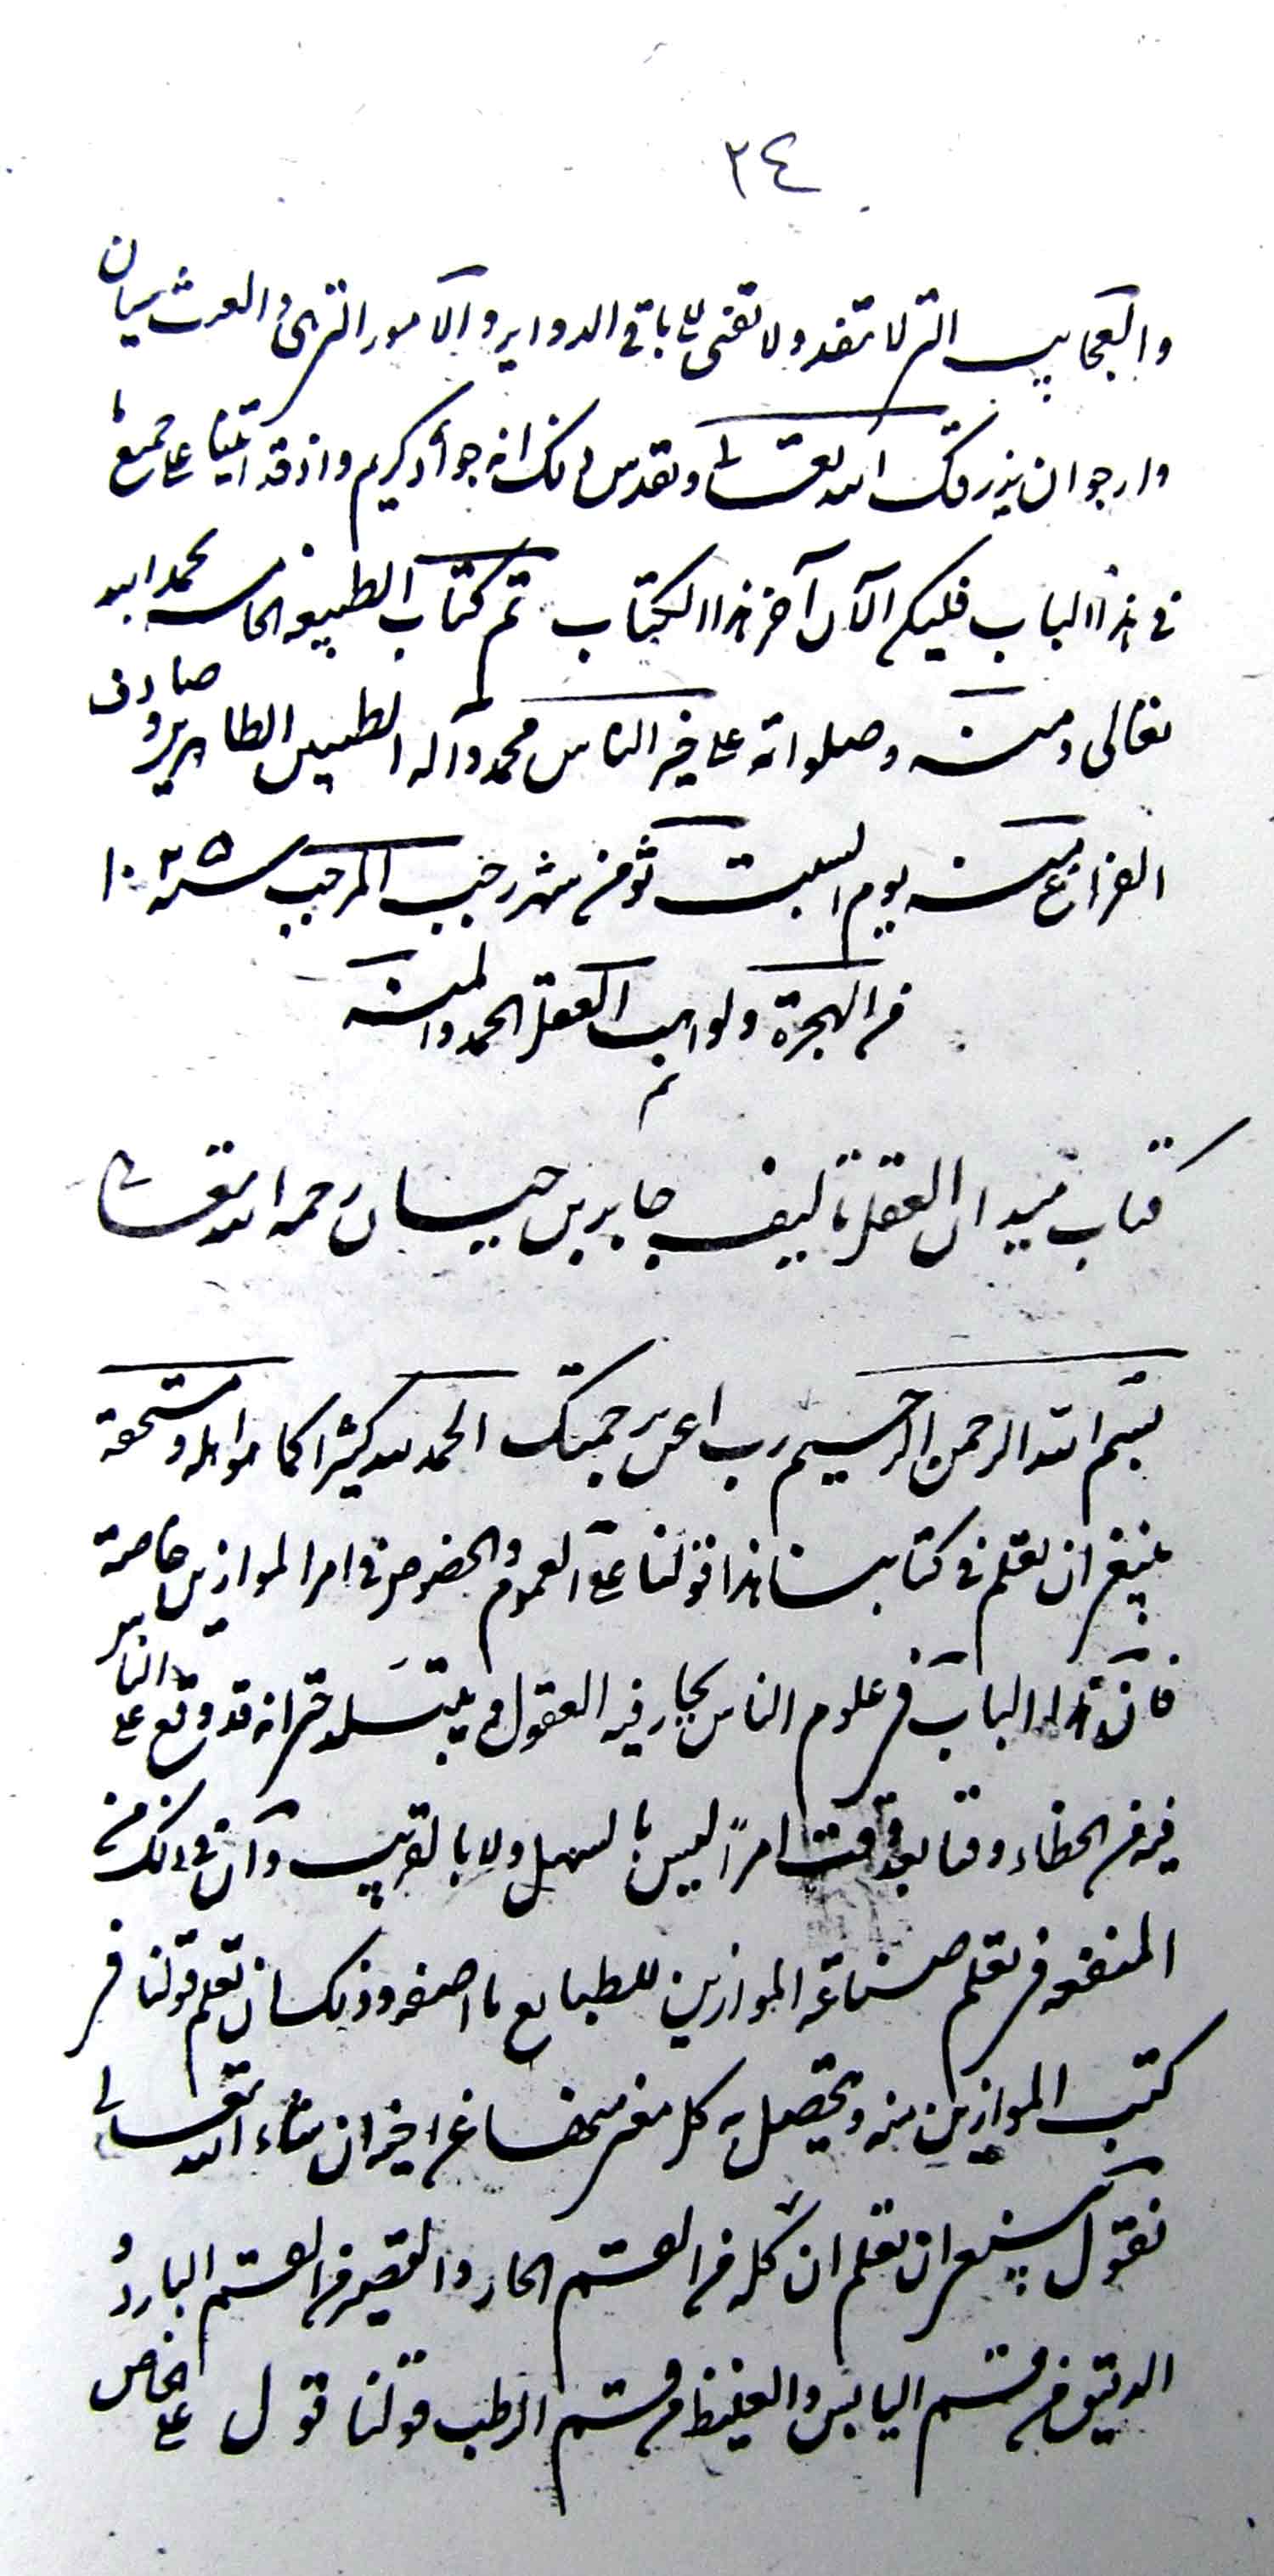 ٢٤
والعجايب التى لا تنفد ولا تفنى يا باقى الدواير والامور التى والعرش بيان
وارجو ان يرزقك الله تعالى وتقدس ذلك انه جواد كريم واذ قد اتينا على جميع ما
فى هذا الباب فليكن الآن آخر هذا الكتاب تم كتاب الطبيعه الخامسه بحمد الله
تعالى ومنه وصلواته على خير الناس محمد وآله الطيبين الطاهرين و صادف
الفراغ منه يوم السبت من شهر رجب المرجب سنه ١٠٣٥
من الهجرة ولواهب العقل الحمد والمنه
تم
كتاب ميدان العقل تاليف جابر بن حيان رحمه الله تعالى
بسم الله الرحمن الرحيم رب اعن برحمتك الحمد لله كثيرا كما هو اهله ومستحقه
ينبغى ان تعلم فى كتابنا هذا قولنا على العموم والخصوص فى امر الموازين خاصة
فان هذا الباب من علوم الناس يحار فيه العقول و يتبلد حتى انه قد وقع على الناس
فيه من الخطاء وقتا بعد وقت امرًا ليس بالسهل ولا بالقريب وان فى ذلك من
المنفعه فى تعلم صناعة الموازين للطبايع ما اصفه وذلك ان تعلم قولنا فى
كتب الموازين منه وتحصل به كل معنى منها عن اخيه ان شاء الله تعالى
نقول ينبغى ان تعلم ان كله من القسم الحار والقصير من القسم البارد و
الدقيق من قسم اليابس والغليظ من قسم الرطب قولنا قول على خاص